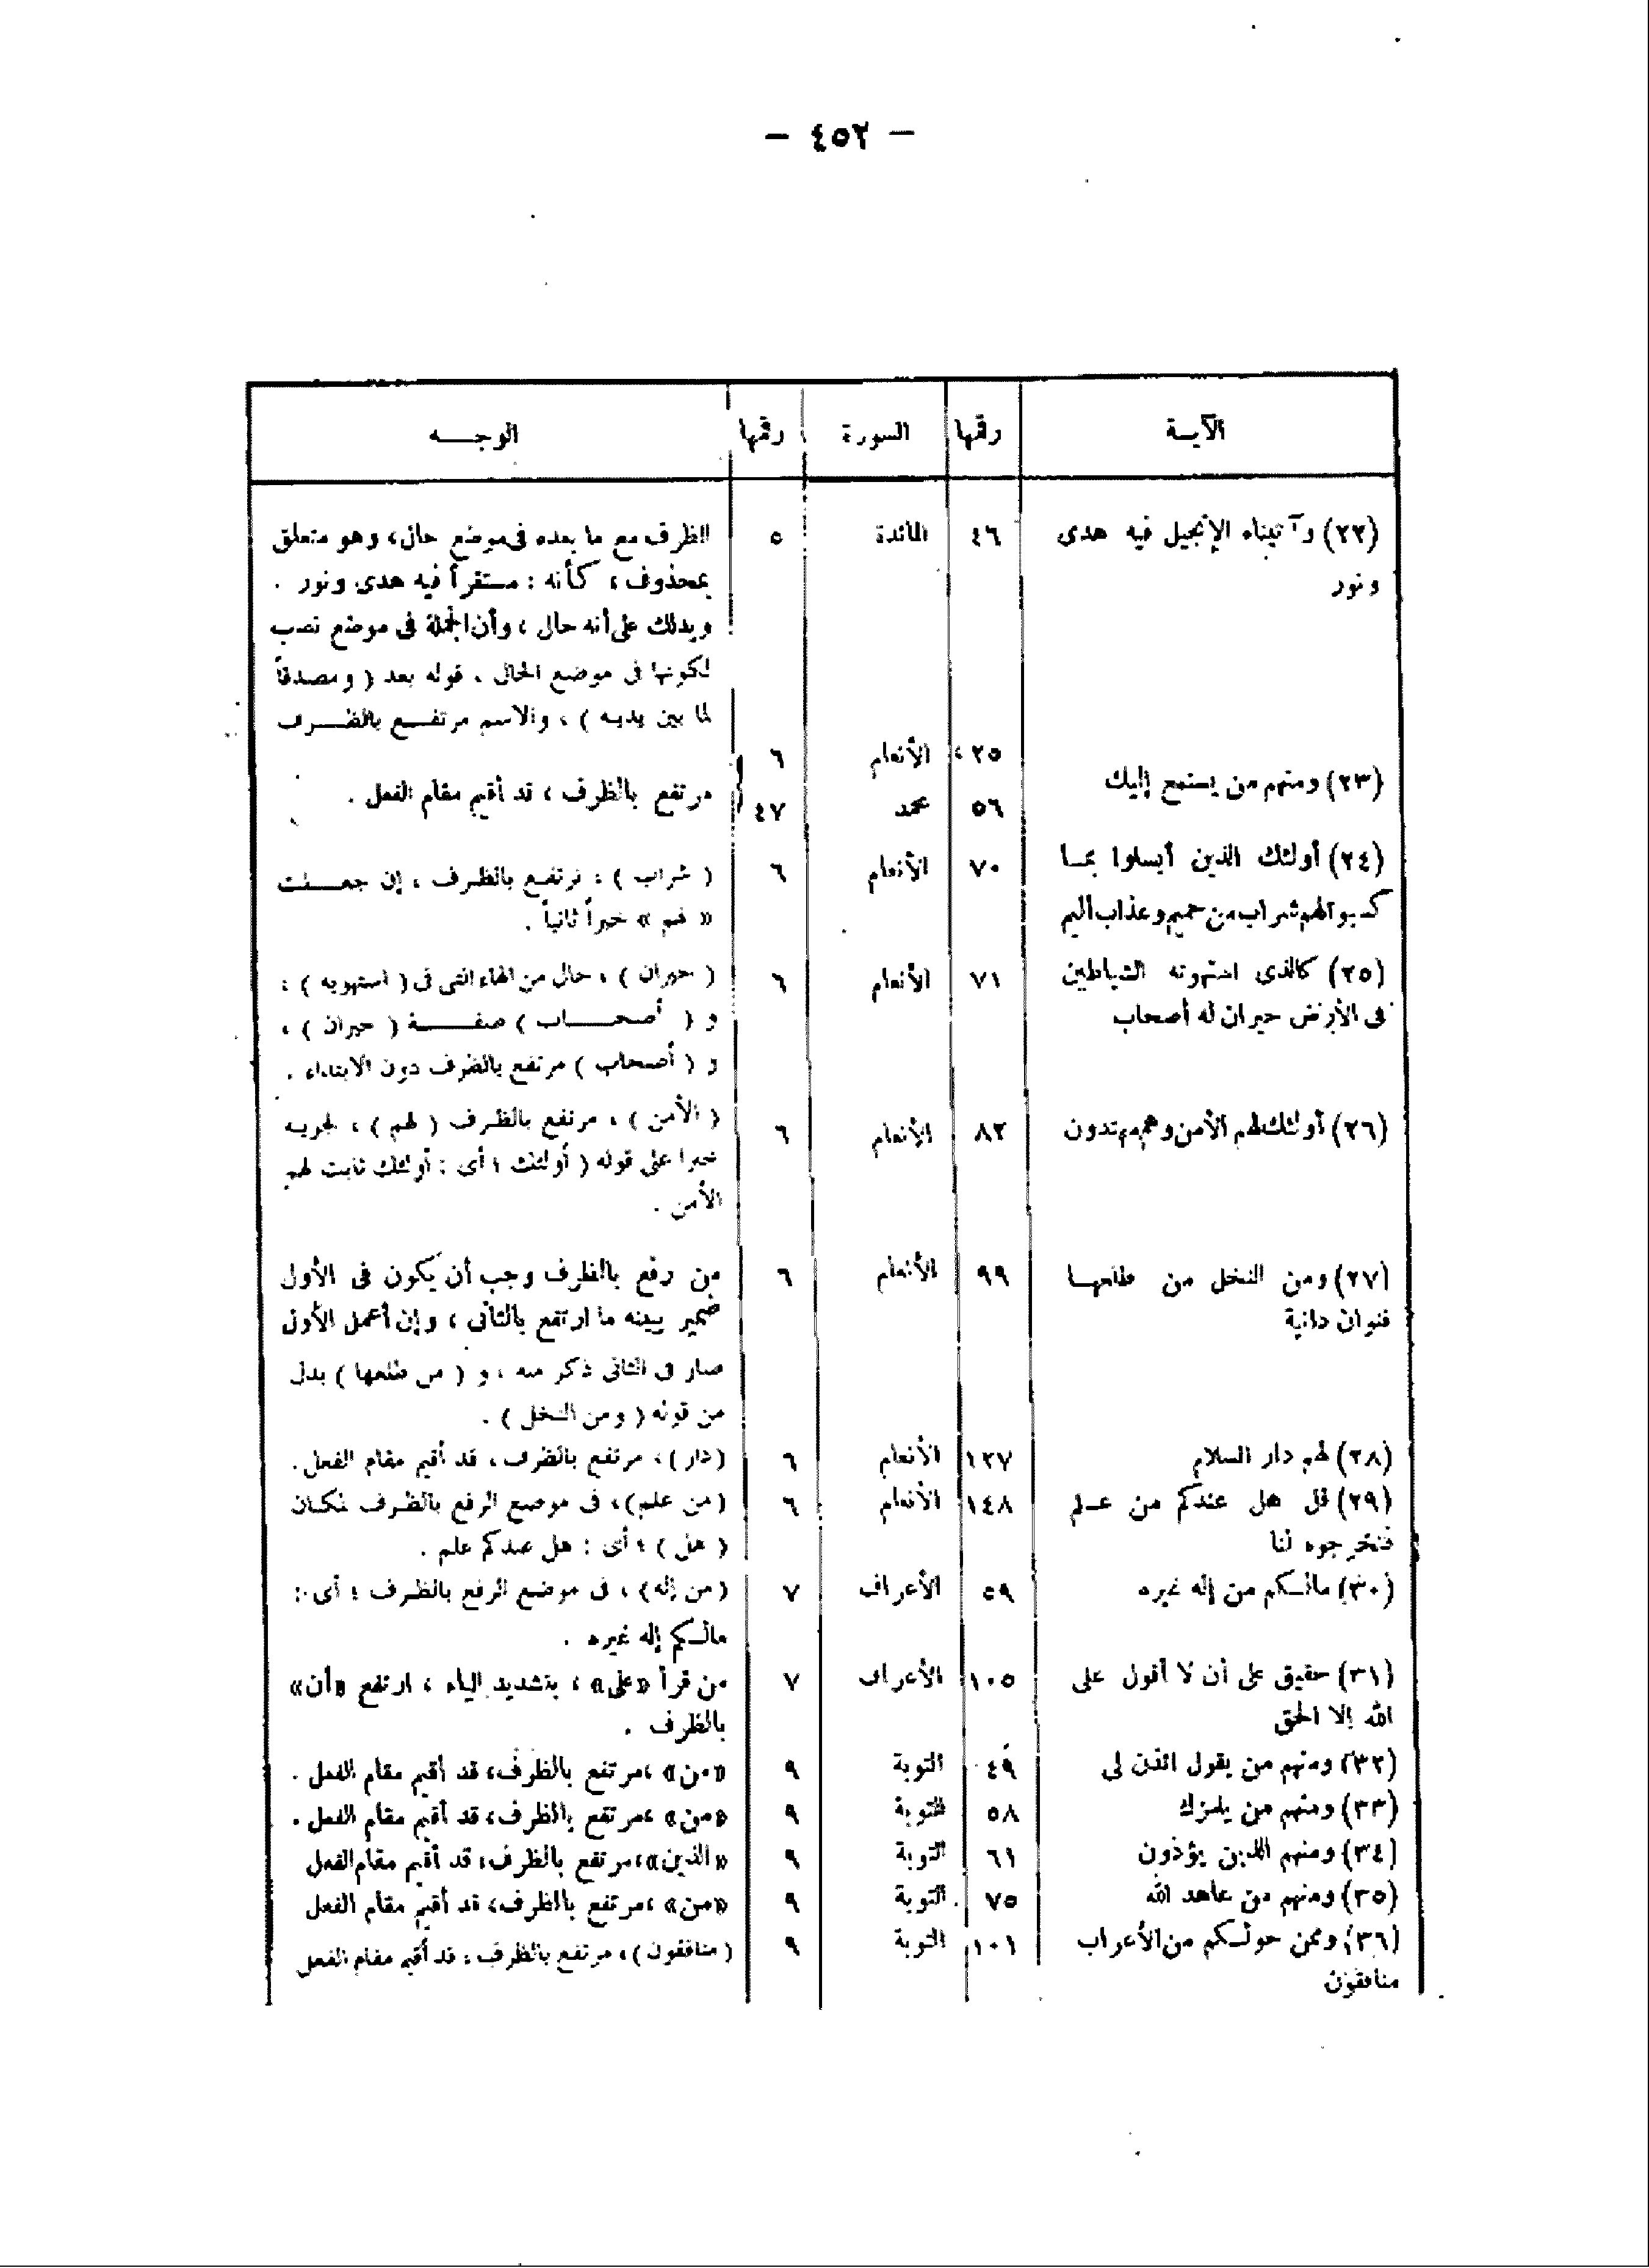 — ٤٥٢ —
الآيــة رقمها السورة رقمها الوجــــه
(٢٢) وآتيناه الإنجيل فيه هدى ٤٦ المائدة ٥ الظرف مع ما بعده فى موضع حال، وهو متعلق
ونور بمحذوف، كأنه : مستقراً فيه هدى ونور .
ويدلك على أنه حال ، وأن الجملة فى موضع نصب
لكونها فى موضع الحال ، قوله بعد ( ومصدقاً
لما بين يديه ) ، والاسم مرتفــع بالظــرف
(٢٣) ومنهم من يستمع إليك ٢٥، الأنعام ٦
٥٦ محمد ٤٧ مرتفع بالظرف ، قد أقيم مقام الفعل .
(٢٤) أولئك الذين أبسلوا بمــا ٧٠ الأنعام ٦ ( شراب ) ، يرتفـع بالظـرف ، إن جعــلت
كسبوا لهم شراب من حميم وعذاب أليم « لهم » خبراً ثانياً .
(٢٥) كالذى استهوته الشياطين ٧١ الأنعام ٦ ( حيران ) ، حال من الهاء التى فى ( استهويه ) ،
فى الأرض حيران له أصحاب و ( أصحــاب ) صفــــة ( حيران ) ،
و ( أصحاب ) مرتفع بالظرف دون الابتداء .
(٢٦) أولئك لهم الأمن وهم مهتدون ٨٢ الأنعام ٦ ( الأمن ) ، مرتفع بالظـرف ( لهم ) ، لجريـه
خبرا على قوله ( أولئك ؛ أى : أولئك ثابت لهم
الأمن .
(٢٧) ومن النخل من طلعهــا ٩٩ الأنعام ٦ من رفع بالظرف وجب أن يكون فى الأول
قنوان دانية ضمير يبينه ما ارتفع بالثانى ، وإن أعمل الأول
صار فى الثانى ذكر منه ، و ( من طلعها ) بدل
من قوله ( ومن النخل ) .
(٢٨) لهم دار السلام ١٢٧ الأنعام ٦ ( دار ) ، مرتفع بالظرف ، قد أقيم مقام الفعل.
(٢٩) قل هل عندكم من عــلم ١٤٨ الأنعام ٦ ( من علم )، فى موضع الرفع بالظـرف لمكـان
فتخرجوه لنا ( هل ) ؛ أى : هل عندكم علم .
(٣٠) مالـكم من إله غيره ٥٩ الأعراف ٧ ( من إله ) ، فى موضع الرفع بالظـرف ؛ أى :
مالـكم إله غيره .
(٣١) حقيق على أن لا أقول على ١٠٥ الأعراف ٧ من قرأ «على» ، بتشديد الياء ، ارتفع «أن»
الله إلا الحق بالظرف .
(٣٢) ومنهم من يقول ائذن لى ٤٩ التوبة ٩ «من» ،مرتفع بالظرف، قد أقيم مقام الفعل .
(٣٣) ومنهم من يلمزك ٥٨ التوبة ٩ «من» ،مرتفع بالظرف، قد أقيم مقام الفعل .
(٣٤) ومنهم الذين يؤذون ٦١ التوبة ٩ «الذين»،مرتفع بالظرف، قد أقيم مقام الفعل
(٣٥) ومنهم من عاهد الله ٧٥ التوبة ٩ «من» ،مرتفع بالظرف، قد أقيم مقام الفعل
(٣٦) وممن حولـكم من الأعراب ١٠١ التوبة ٩ ( منافقون ) ، مرتفع بالظرف ، قد أقيم مقام الفعل
منافقون